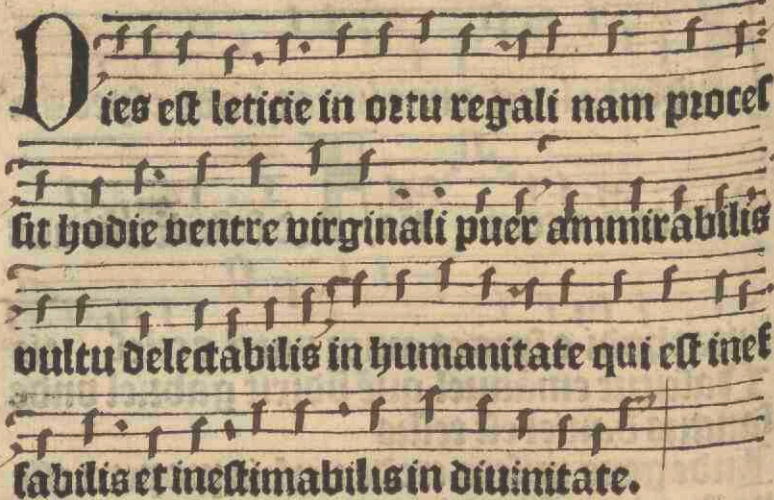 Dies est leticie in ortu regali nam proces
sit hodie ventre virginali puer ammirabilis
vultu delectabilis in humanitate qui est inef
fabilis et inestimabilis in diuinitate.